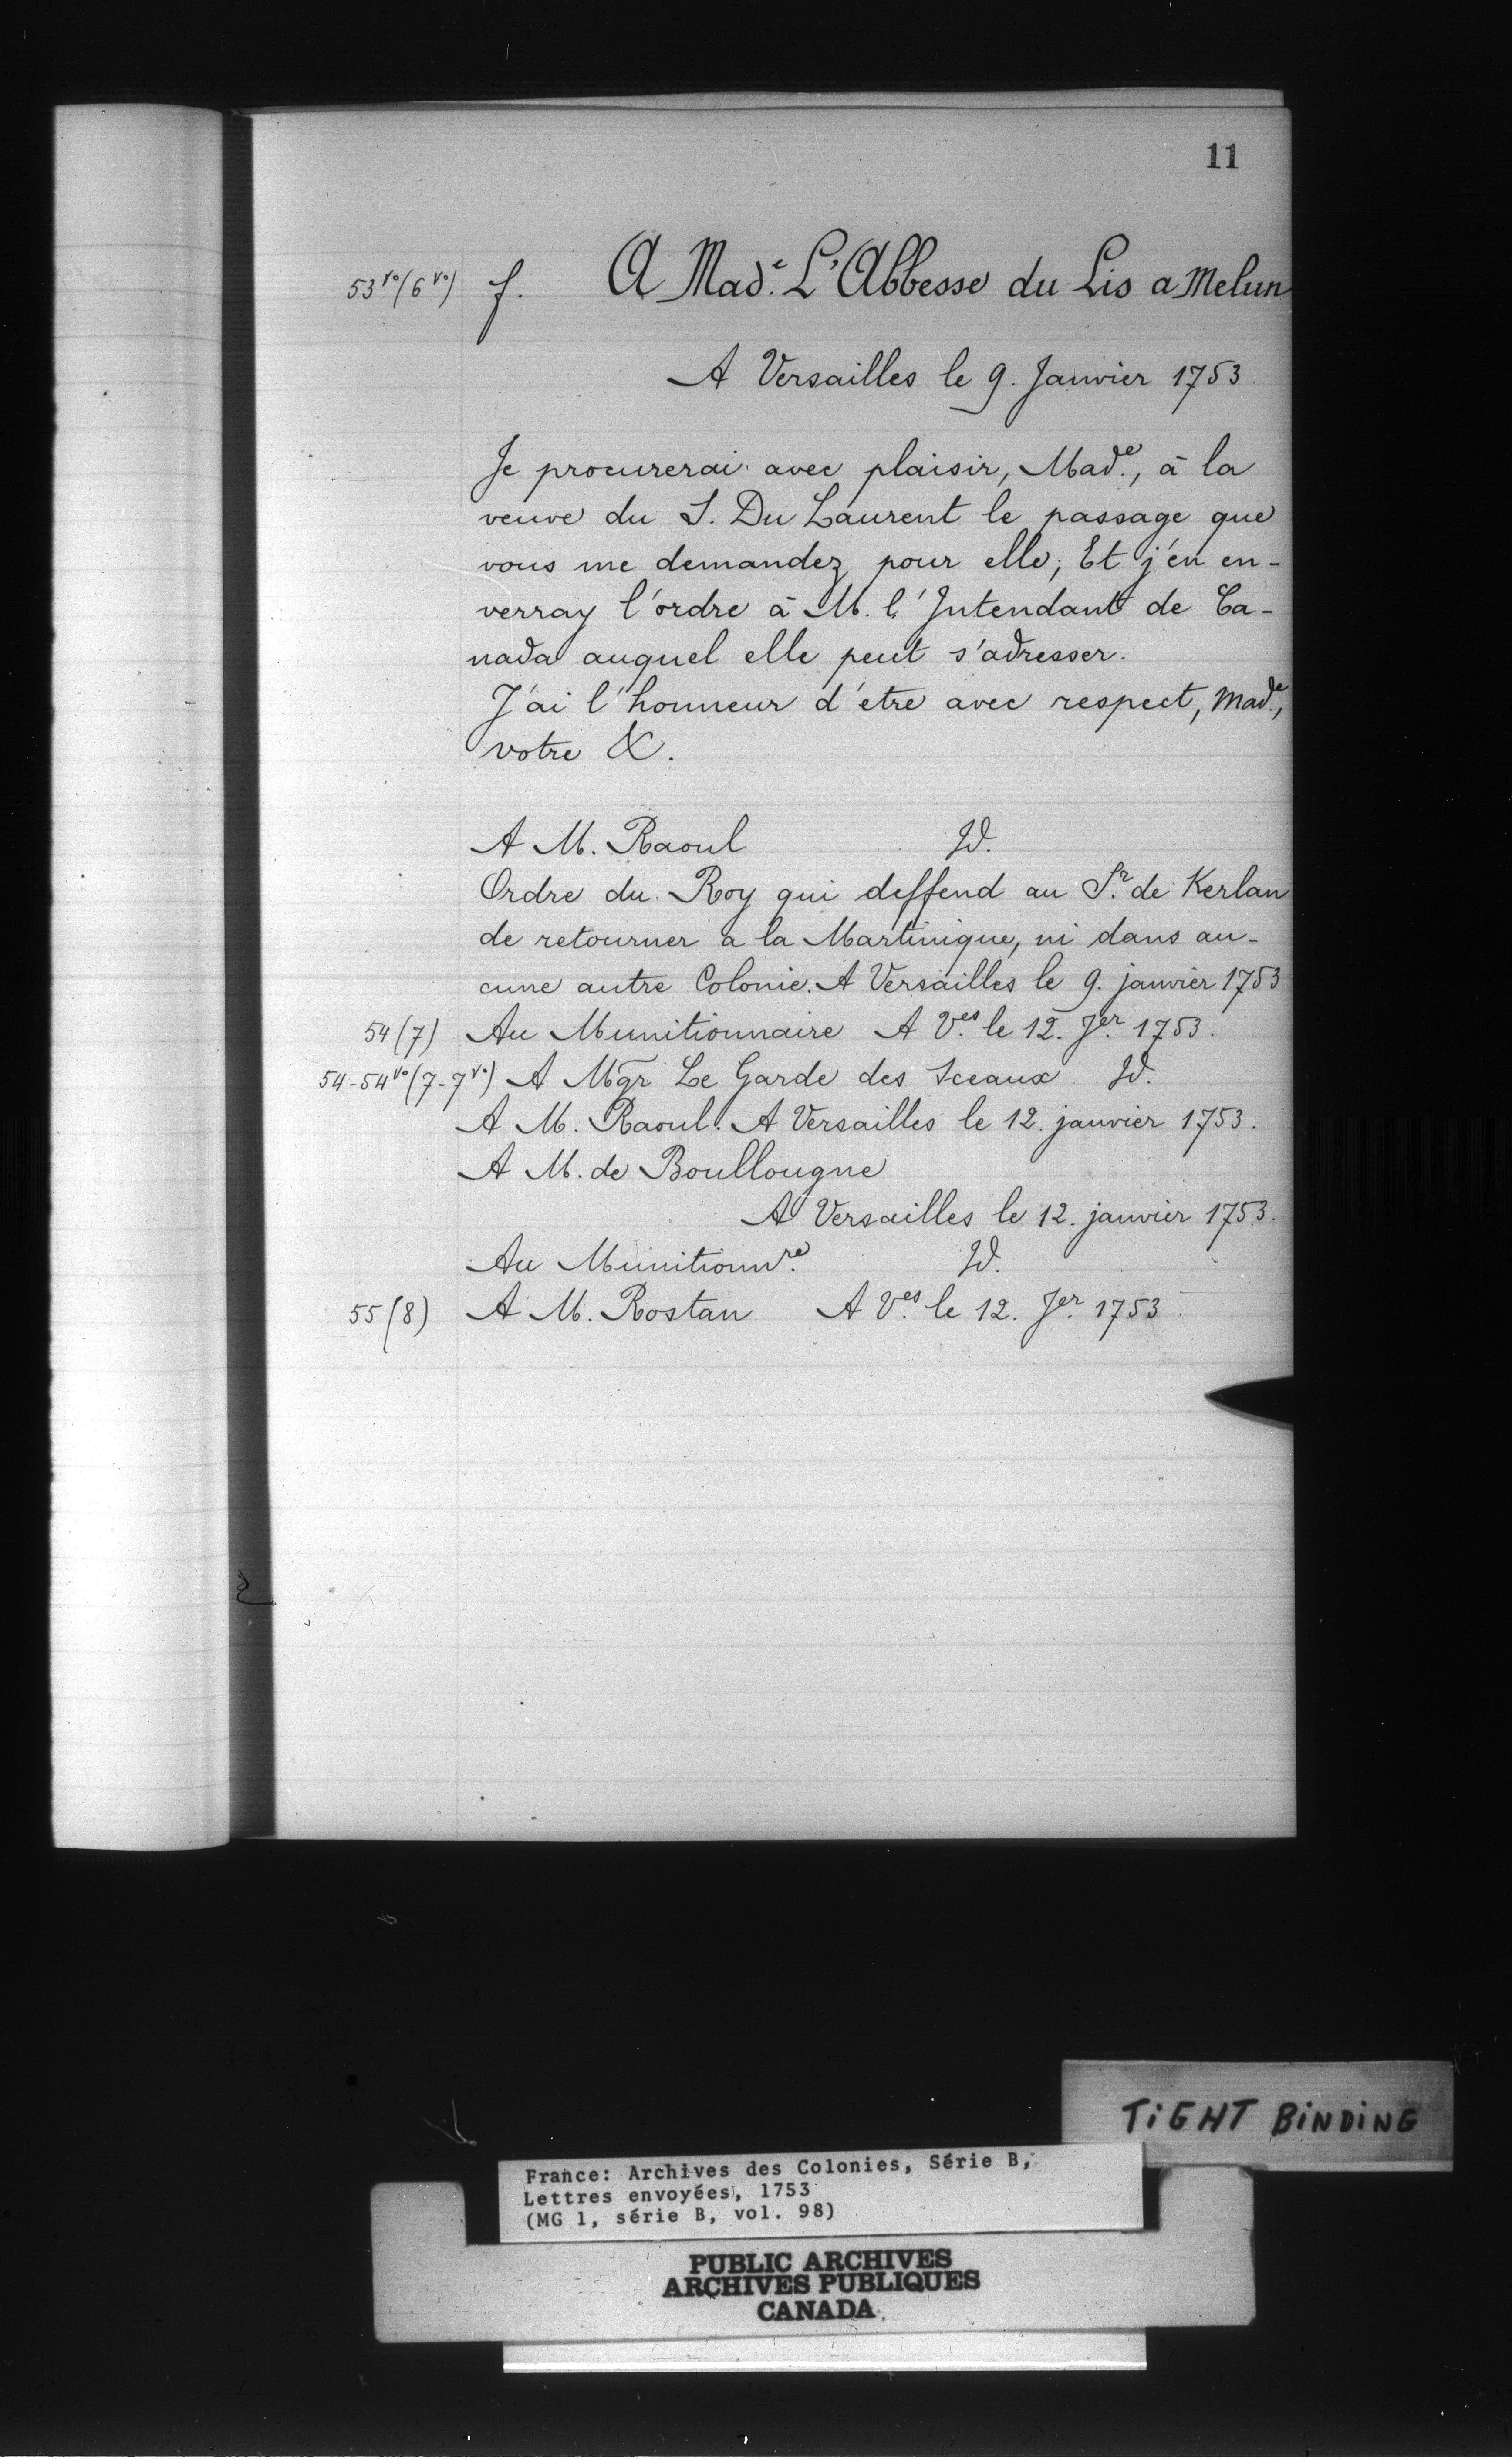 11
53vo(6vo) f. A Made. L'Abbesse du Lis a Melun
A Versailles le 9. Janvier 1753
Je procurerai avec plaisir, Made., à la
veuve du S. Du Laurent le passage que
vous me demandez pour elle; Et j'en en-
verray l'ordre à M. l'Intendant de Ca-
nada auquel elle peut s'adresser.
J'ai l'honneur d'etre avec respect, Made.,
votre &.
A M. Raoul Id.
Ordre du Roy qui deffend au Sr. de Kerlan
de retourner a la Martinique, ni dans au-
cune autre Colonie. A Versailles le 9. janvier 1753
54(7) Au Munitionnaire A Ves. le 12. Jer. 1753.
54-54vo(7-7vo) A Mgr Le Garde des Sceaux Id.
A M. Raoul. A Versailles le 12. janvier 1753.
A M. de Boullougne
A Versailles le 12. janvier 1753.
Au Munitionnre. Id.
55(8) A M. Rostan A Ves. le 12. Jer. 1753
TIGHT BINDING
France: Archives des Colonies, Série B,
Lettres envoyées, 1753
(MG 1, série B, vol. 98)
PUBLIC ARCHIVES
ARCHIVES PUBLIQUES
CANADA